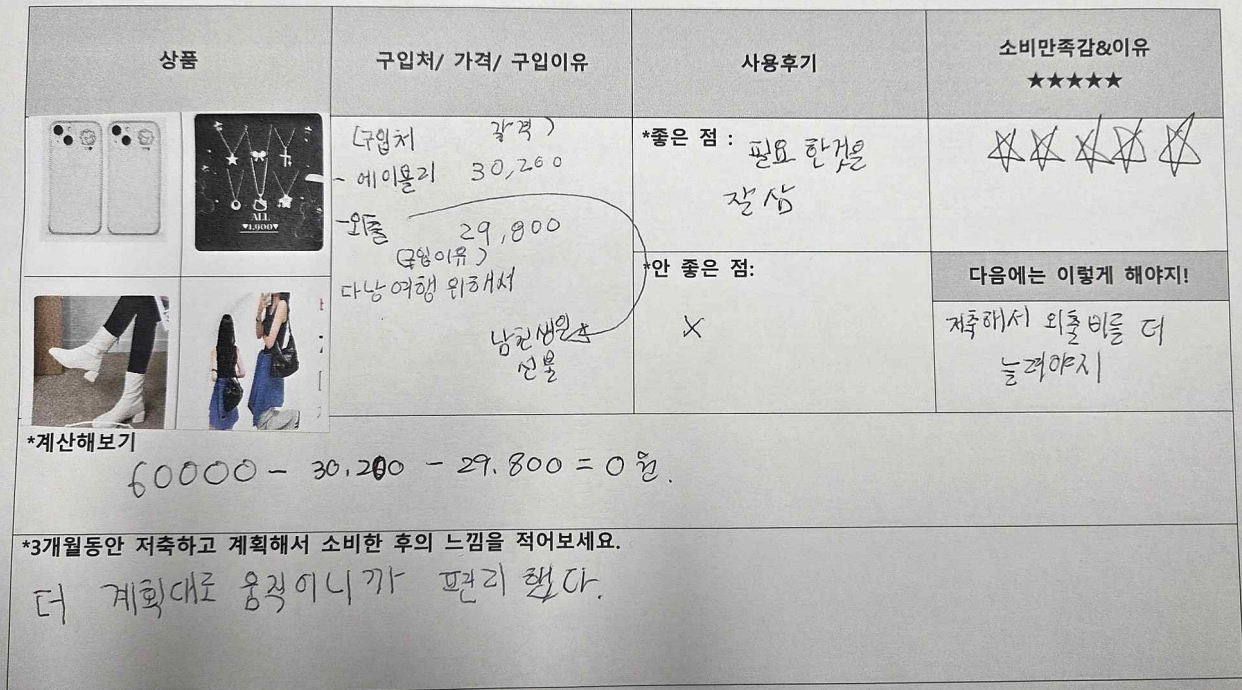 상품
구입처/ 가격/ 구입이유
사용후기
소비만족감&이유
★★★★★
ALL
▼1,900▼
(구입처 가격)
- 에이블리 30,200
-외출 29,800
(구입이유)
다낭여행 위해서
남친생일
선물
*좋은 점 : 필요 한것을
잘 삼
*안 좋은 점:
X
다음에는 이렇게 해야지!
저축해서 외출비를 더
늘려야지
*계산해보기
60000 - 30,200 - 29.800 = 0 원.
*3개월동안 저축하고 계획해서 소비한 후의 느낌을 적어보세요.
더 계획대로 움직이니까 편리 했다.